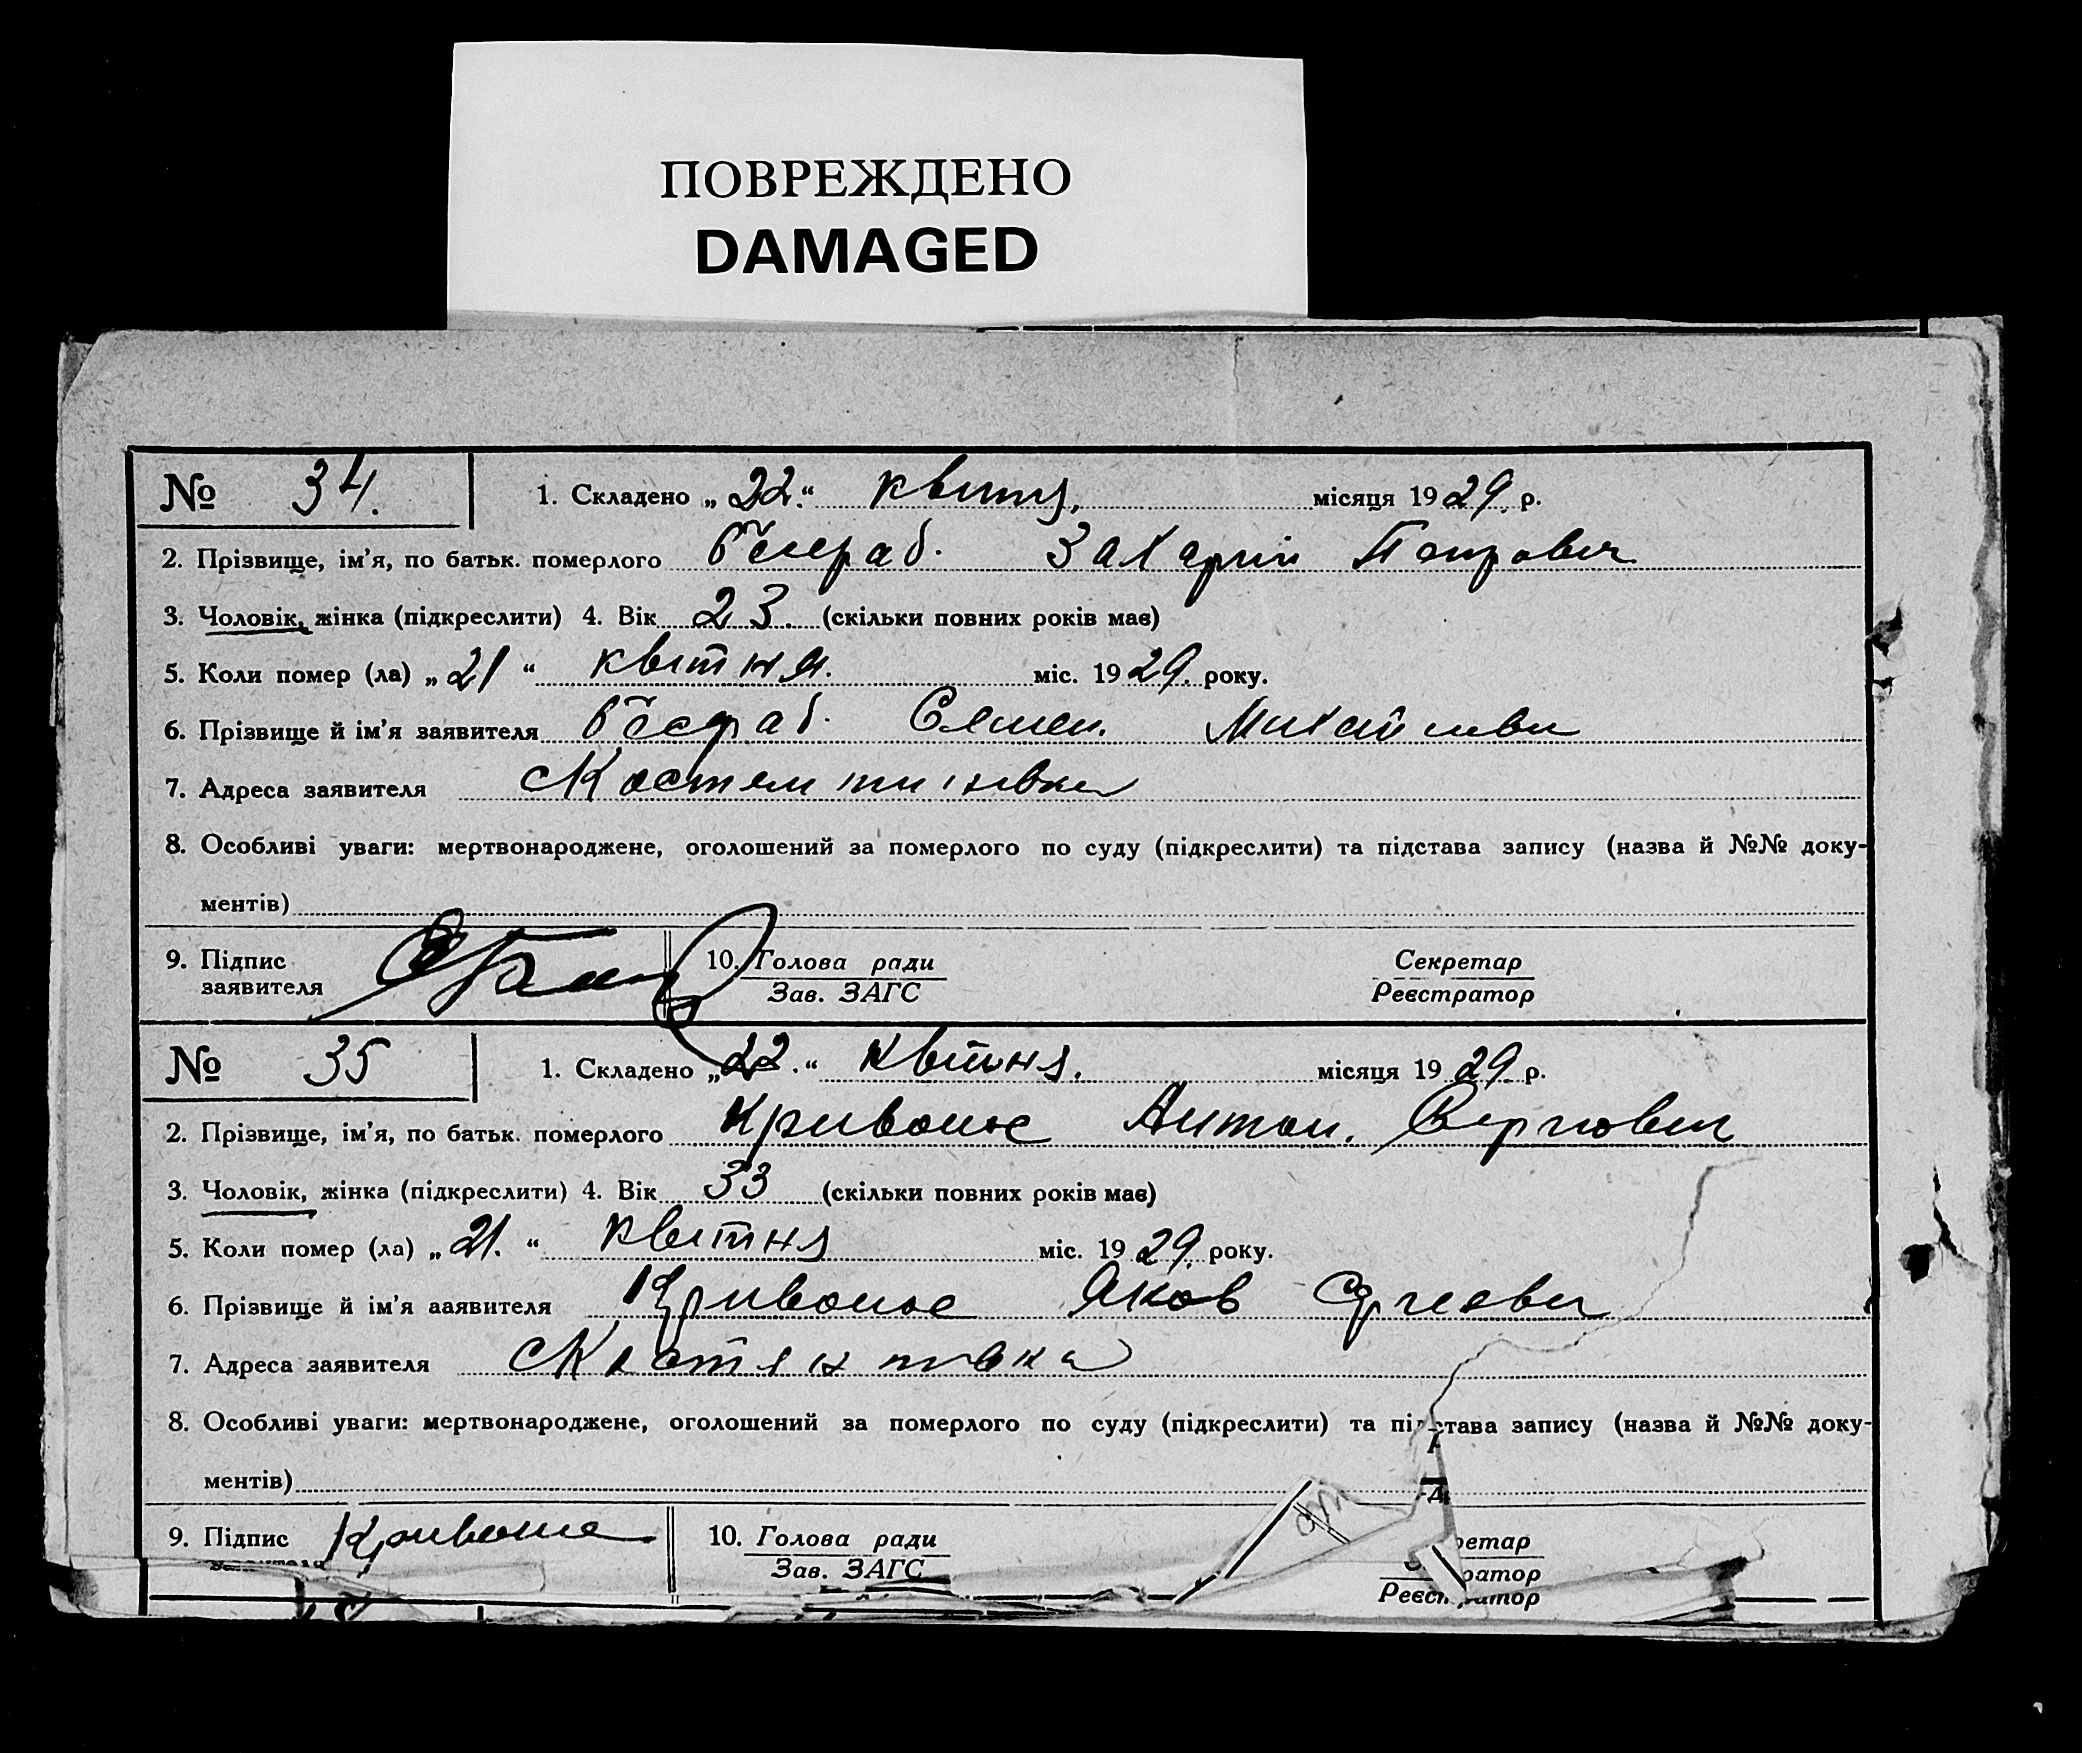 ПОВРЕЖДЕНО
DAMAGED
№ 34. 1. Складено „22.“ квітня, місяця 1929. р.
2. Прізвище, ім'я, по батьк. померлого Захарій Петрович
3. Чоловік, жінка (підкреслити) 4. Вік 23. (скільки повних років має)
5. Коли помер (ла) „21“ квітня. міс. 1929. року.
6. Прізвище й ім'я заявителя Семен.
7. Адреса заявителя
8. Особливі уваги: мертвонароджене, оголошений за померлого по суду (підкреслити) та підстава запису (назва й №№ доку-
ментів)
9. Підпис заявителя 10. Голова ради Секретар
Зав. ЗАГС Реєстратор
№ 35 1. Складено „22.“ квітня. місяця 1929. р.
2. Прізвище, ім'я, по батьк. померлого Кривонос Антон.
3. Чоловік, жінка (підкреслити) 4. Вік 33 (скільки повних років має)
5. Коли помер (ла) „21.“ квітня міс. 1929. року.
6. Прізвище й ім'я ааявителя Кривонос Яков
7. Адреса заявителя
8. Особливі уваги: мертвонароджене, оголошений за померлого по суду (підкреслити) та підстава запису (назва й №№ доку-
ментів)
9. Підпис 10. Голова ради ретар
Зав. ЗАГС ратор